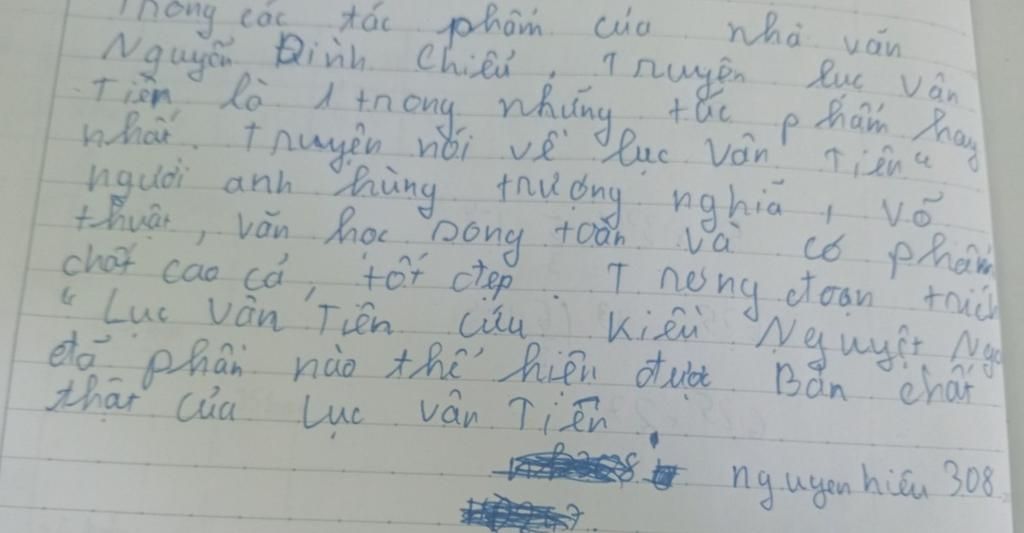 Trong các tác phẩm của nhà văn
Nguyễn Đình Chiểu, Truyện Lục Vân
Tiên là 1 trong những tác phẩm hay
nhất. Truyện nói về Lục Vân Tiên"
người anh hùng trượng nghĩa, võ
thuật, văn học song toàn và có phẩm
chất cao cả, tốt đẹp. Trong đoạn trích
"Lục Vân Tiên cứu Kiều Nguyệt Nga
đã phần nào thể hiện được Bản chất
thật của Lục Vân Tiên.
nguyenhiếu308